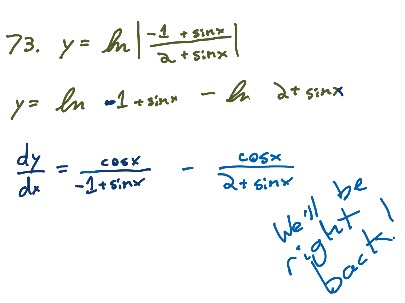 73. y = ln |(-1 + sinx)/(2 + sinx)|
y = ln -1 + sinx - ln 2 + sinx
dy/dx = cosx/(-1 + sinx) - cosx/(2 + sinx)
We'll be
right
back!